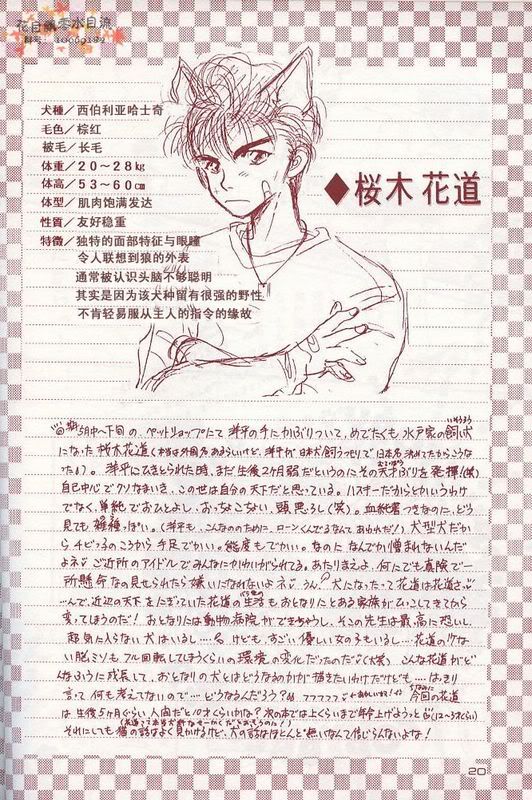 花目飄零水自流
犬種／西伯利亚哈士奇
毛色／棕红
被毛／长毛
体重／20～28kg
体高／53～60cm
体型／肌肉饱满发达
性質／友好稳重
特徵／独特的面部特征与眼瞳
令人联想到狼的外表
通常被认识头脑不够聪明
其实是因为该犬种留有很强的野性
不肯轻易服从主人的指令的缘故
◆桜木 花道
5月中～下旬の、ペットショップにて 洋平の手にかぶりついて、めでたくも 水戸家の飼い犬
になった 桜木花道
洋平にひきとられた時、まだ 生後2ヶ月弱だというのにその天才ぶりを発揮(笑)
自己中心でクソなまいき、この世は自分の天下だと思っている。ハスキーだからとかいうわけ
でなく、単純でおひとよし、おっちょこちょい、頭悪いし(笑)。血統書つきなのに、どう
見ても雑種っぽい。 犬型犬だか
らチビっ子のころから手足でかい。態度もでかい。なのに なんでか憎まれないんだ
よネ ご近所のアイドルでみんなにかわいがられてる。あたりまえよ、何にでも真険で一
所懸命な所見せられたら嫌いになれないよネ うん？犬になったって花道は花道さ
んで、近辺の天下をにぎっていた花道の生活もおとなりにとある家族がひっこしてきてから
変ってしまうのだ！おとなりには動物病院ができちゃうし、そこの先生は最高に恐いし、
超気に入らない犬はいるし・・・・けども、すごい優しい女の子もいるし…花道の少な
い脳ミソもフル回転してしまうくらいの環境の変化だったのだ(大笑) こんな花道がど
んなふうに成長して、おとなりの犬とはどうなるのかが描きたいわけだけども… はっきり
言って何も考えてないので… どうなるんだろう？ フフフフフ 今回の花道
は生後5ヶ月ぐらい、人間だと10才くらいかな？次の本では上くらいまで年令上げようっと
それにしても猫の話はよく見かけるけど、犬の話はほとんど無いなんて信じらんないよな！
20